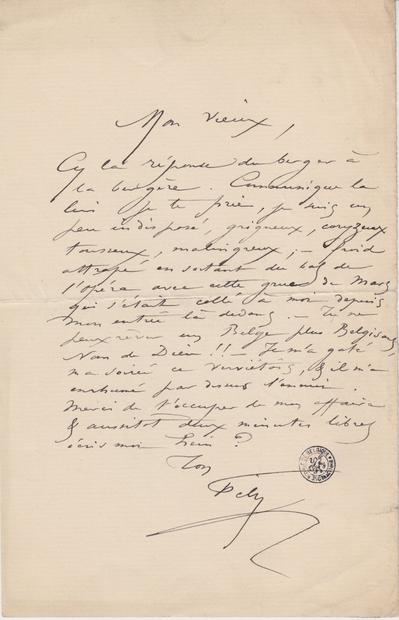 Mon vieux,
Cy la réponse du berger à
la bergère. Communique la
lui je te prie, je suis un
peu indisposé, grigneux, coryzeux
tousseux, malingreux; – froid
attrapé en sortant du bal de
l'opéra avec cette grue de Marg
qui s'était collé à moi depuis
mon entrée là dedans. – Tu ne
peux rêver un Belge plus Belgisant,
Nom de Dieu!! – Il m'a gâté
ma soirée ce Verviétois, & il m'a
enrhumé par dessus
Merci de t'occuper de mes affaires
& aussitôt deux minutes libres
écris moi hein?
Ton
Fély